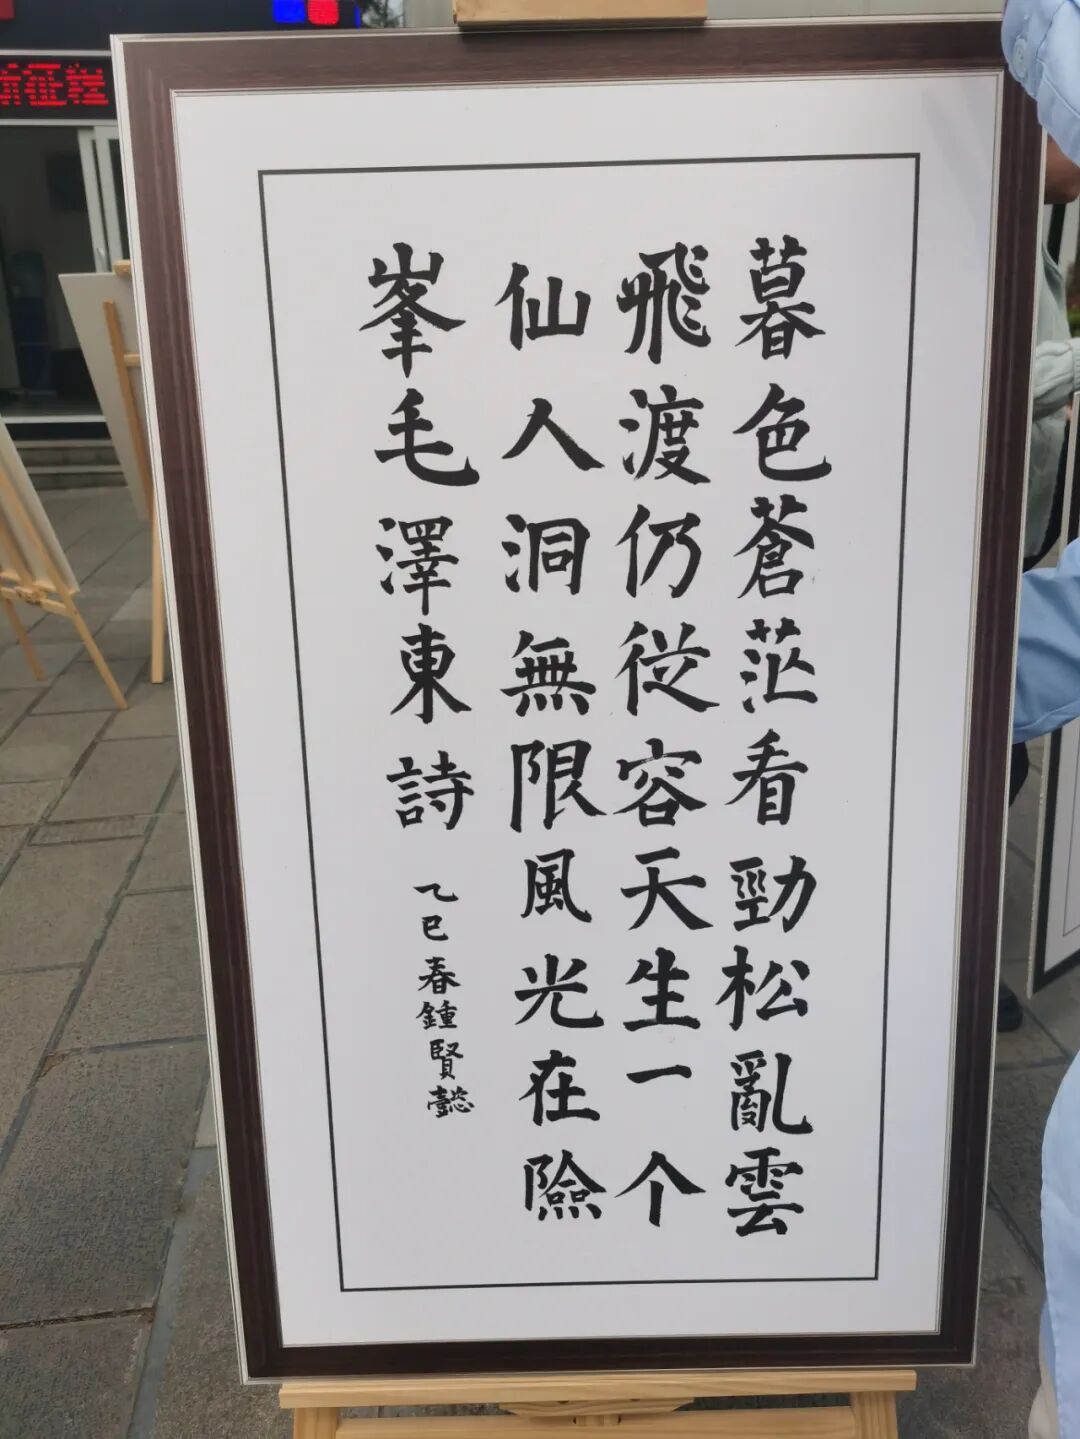 暮色蒼茫看勁松亂雲
飛渡仍從容天生一个
仙人洞無限風光在險
峯毛澤東詩
乙巳春鍾賢懿
新征程